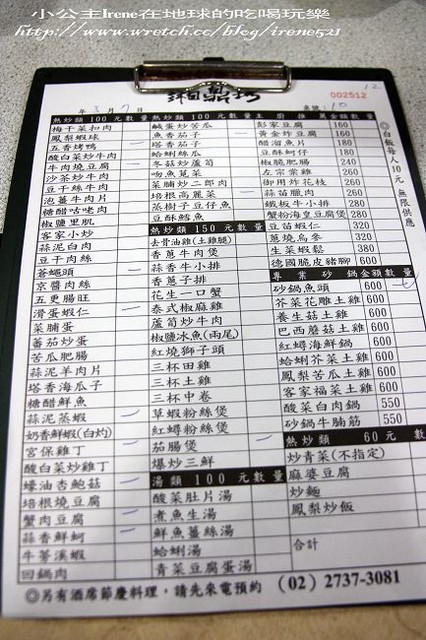 小公主Irene在地球的吃喝玩樂
http://www.wretch.cc/blog/irene521
002512
年 月 日
桌號：10
熱炒類 100 元 數量
梅干菜扣肉
鳳梨蝦球
五香烤鴨
酸白菜炒牛肉
牛肉燒豆腐
沙茶炒牛肉
豆干絲牛肉
泡薑牛肉片
糖醋咕咾肉
椒鹽里肌
客家小炒
蒜泥白肉
豆干肉絲
蒼蠅頭
京醬肉絲
五更腸旺
滑蛋蝦仁
菜脯蛋
蕃茄炒蛋
苦瓜肥腸
蒜泥羊肉片
塔香海瓜子
糖醋鮮魚
蒜泥蒸蝦
奶香鮮蝦(白灼)
宮保雞丁
酸白菜炒雞丁
蠔油杏鮑菇
培根燒豆腐
蟹肉豆腐
蒜香鮮蚵
牛蒡溪蝦
回鍋肉
熱炒類 100 元 數量
鹹蛋炒苦瓜
魚香茄子
塔香茄子
蛤蜊絲瓜
冬菇炒蘆筍
吻魚莧菜
菜脯炒二郎肉
培根高麗菜
蒸樹子豆仔魚
豆酥鱈魚
熱炒類 150 元 數量
去骨油雞(土雞腿)
香蔥牛肉煲
蒜香牛小排
香蔥子排
花生一口蟹
泰式椒麻雞
蘆筍炒牛肉
椒鹽冰魚(兩尾)
紅燒獅子頭
三杯田雞
三杯土雞
三杯中卷
草蝦粉絲煲
紅蟳粉絲煲
茄腸煲
爆炒三鮮
湯類 100 元 數量
酸菜肚片湯
煮魚生湯
鮮魚薑絲湯
蛤蜊湯
青菜豆腐蛋湯
主廚推薦 金額 數量
彭家豆腐 160
黃金炸豆腐 160
醋溜魚片 180
豆酥蚵仔 180
椒脆肥腸 240
左宗棠雞 260
御用炸花枝 260
蒜苗臘肉 260
鐵板牛小排 280
蟹粉海皇豆腐煲 280
豆苗蝦仁 320
蔥燒烏參 320
生菜蝦鬆 380
德國脆皮豬腳
專業砂鍋 金額 數量
砂鍋魚頭 600
芥菜花雕土雞 600
養生菇土雞 600
巴西蘑菇土雞 600
紅蟳海鮮鍋 600
蛤蜊芥菜土雞 600
鳳梨苦瓜土雞 600
客家福菜土雞 600
酸菜白肉鍋 550
砂鍋牛腩筋 550
熱炒類 60 元 數量
炒青菜(不指定)
麻婆豆腐
炒麵
鳳梨炒飯
合計
◎白飯每人10元 無限供應
◎另有酒席節慶料理，請先來電預約 (02) 2737-3081